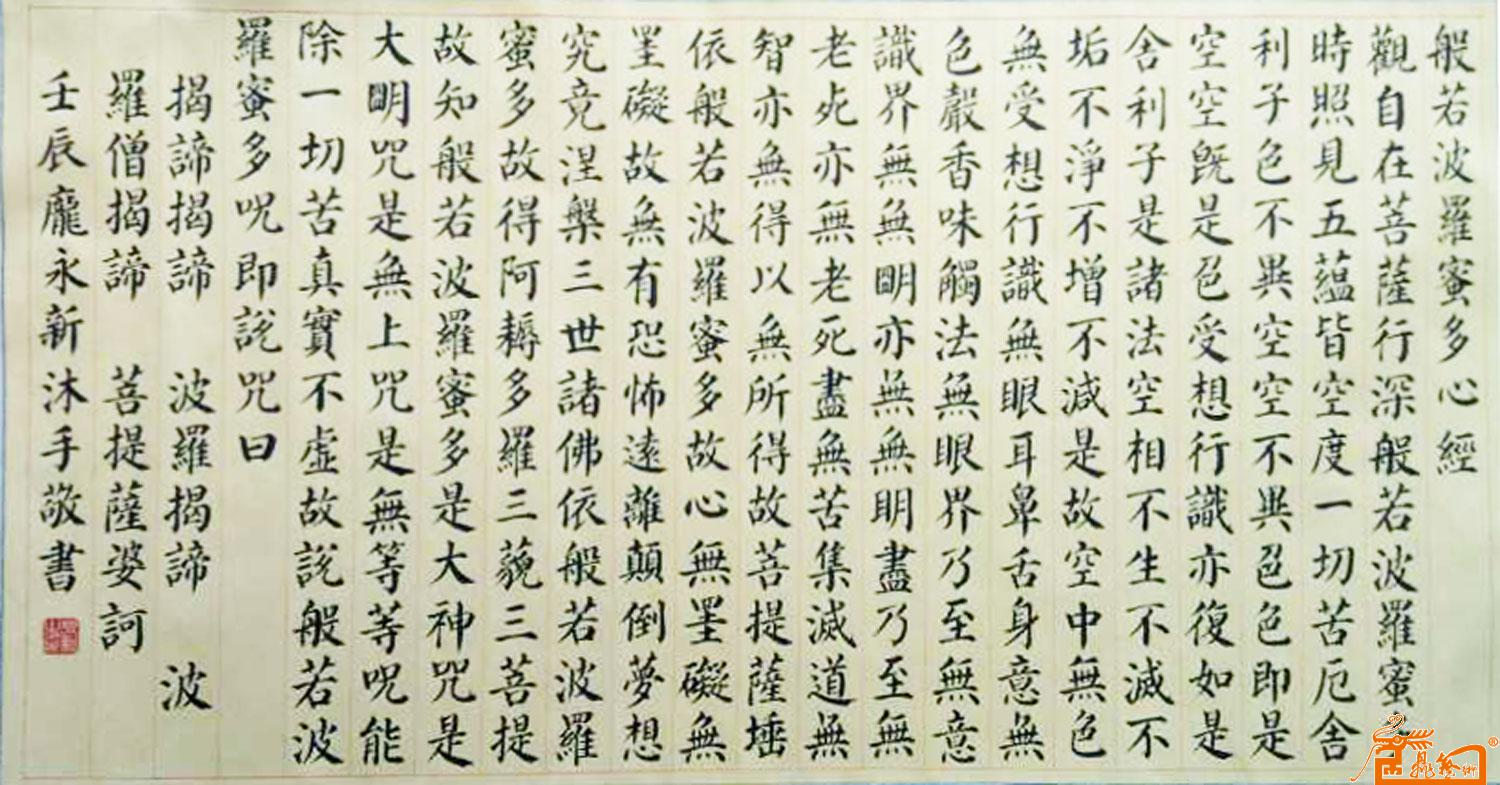 般若波羅蜜多心經
觀自在菩薩行深般若波羅蜜多
時照見五蘊皆空度一切苦厄舍
利子色不異空空不異色色即是
空空既是色受想行識亦復如是
舍利子是諸法空相不生不滅不
垢不淨不增不減是故空中無色
無受想行識無眼耳鼻舌身意無
色嚴香味觸法無眼界乃至無意
識界無無明亦無無明盡乃至無
老死亦無老死盡無苦集滅道無
智亦無得以無所得故菩提薩埵
依般若波羅蜜多故心無罣礙無
罣礙故無有恐怖遠離顛倒夢想
究竟涅槃三世諸佛依般若波羅
蜜多故得阿耨多羅三藐三菩提
故知般若波羅蜜多是大神咒是
大明咒是無上咒是無等等呪能
除一切苦真實不虛故說般若波
羅蜜多呪即說咒曰
揭諦揭諦 波羅揭諦 波
羅僧揭諦 菩提薩婆訶
壬辰龐永新沐手敬書